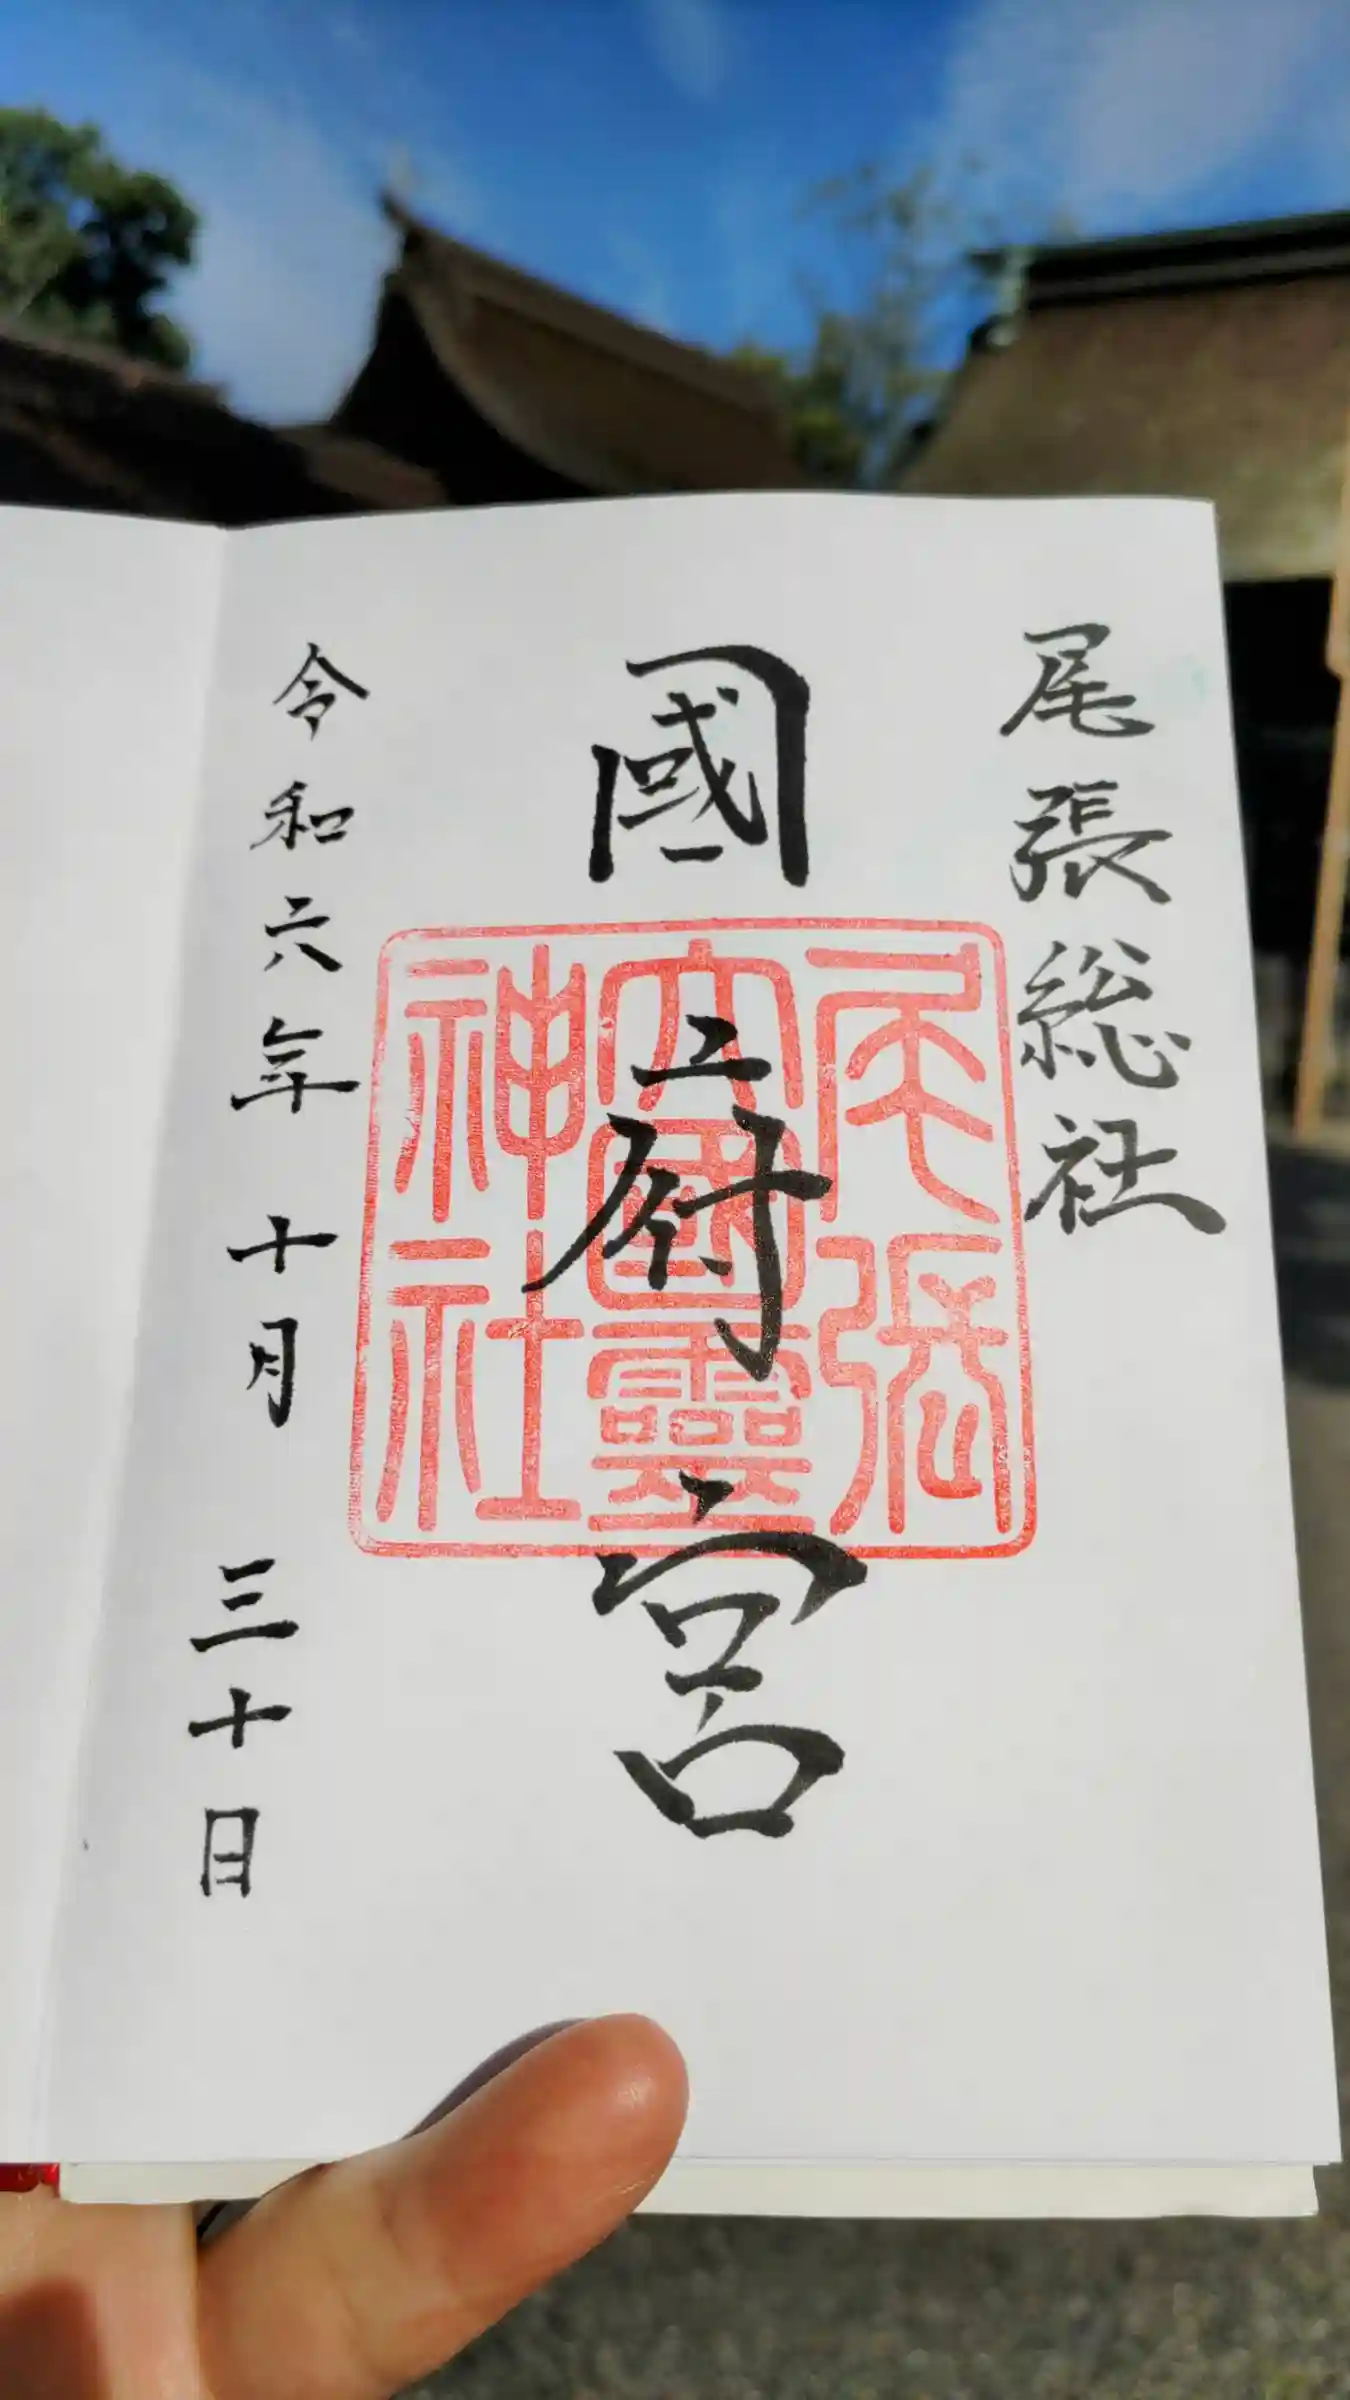 尾張総社
國府宮
尾張
大國霊
神社
令和六年 十月 三十日